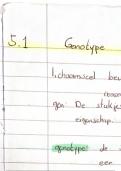 5.1 Genotype
Lichaamscel bev
gen De stukjes
eigenschap.
genotype: de
een